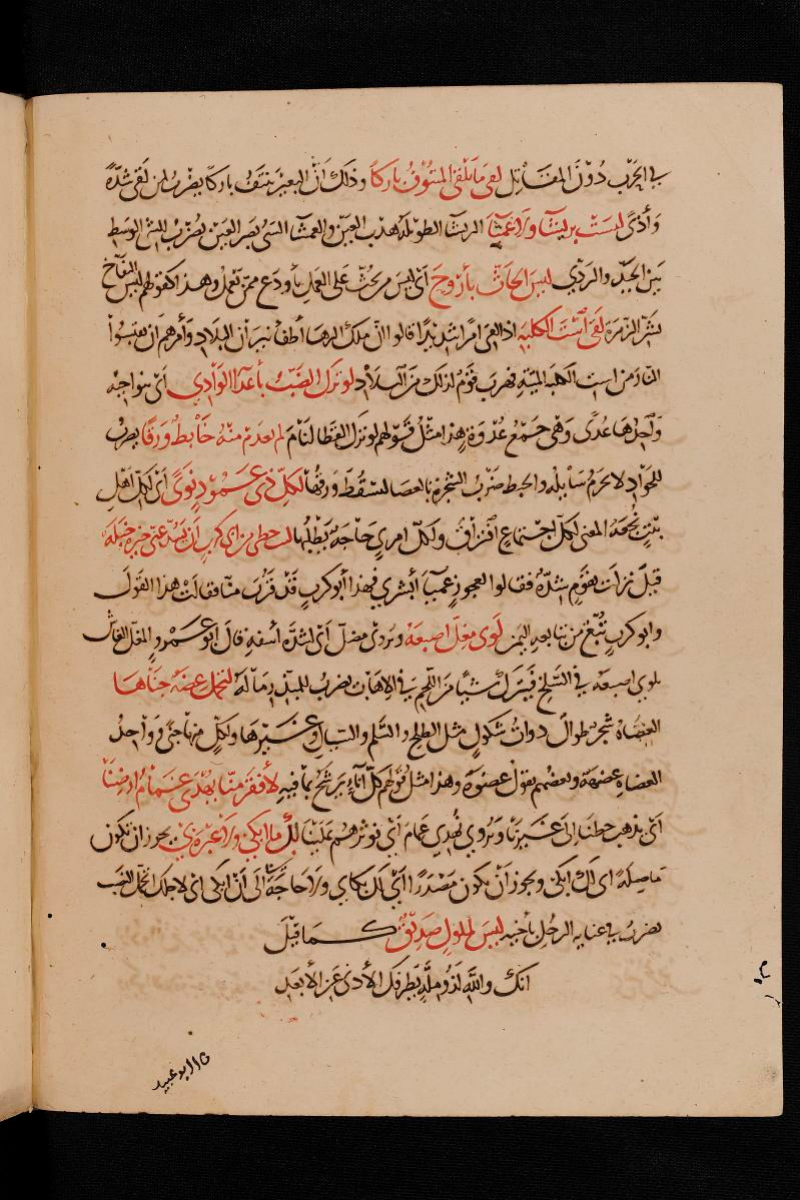 في الحرب دون المقاتل لقي ما يلقى المنتوف باركا وذلك أن البعير ينتف باركا يضرب لمن لقي شدة
وأذى ليست بريشاء ولا عمشاء الريشاء الطويلة هدب العين والعمشاء السيئ بصر العين يضرب للشيء الوسط
بين الجيد والردي ليس الحاث بأروح أي ليس من يحث على العمل بأودع ممن يعمل وهذا كقولهم ليس النفاخ
بشر الزمرة لقي است الكلبة إذا لقي امرا شديدا قالوا ان ملك الرها أطفأ نيران البلاد وأمرهم أن يقتبسوا
النار من است الكلبة الميتة فهرب قوم لذلك من البلاد لو ترك الضب بأعداء الوادي أي بنواحيه
واحدها عدى وهي جمع عدوة وهذا مثل قولهم لو ترك القطا لنام لم يعدم منه خابط ورقا يضرب
للجواد لا يحرم سائله والخبط ضرب الشجرة بالعصا ليسقط ورقها لكل ذي عمود نوى أي لكل أهل
بيت نجعة المعنى لكل اجتماع افتراق ولكل امرئ حاجة يطلبها لست حظي من أبي كرب أن يسد عني خيره خبله
قيل نزلت بقوم شدة فقالوا لعجوز عمياء أبشري فهذا أبو كرب قد قرب منا فقالت هذا القول
وابو كرب تبع من تبابعة اليمن لوى مغل اصبعه ويروى مضل أي لشدة أسفه قال ابو عمرو المغل الغاش
يلوي اصبعه في السلخ فيترك شيئا من اللحم في الإهاب يضرب للمبذر ماله لتحمل عضة جناها
العضاه شجر طوال ذوات شكول مثل الطلح والسلم والسيال وغيرها ولكل منها جنى وواحد
العضاه عضهة وبعضهم يقول عضوة وهذا مثل قولهم كل اناء يرشح بما فيه لأفقر منا يهدى غمام ارضنا
أي يذهب حظنا إلى غيرنا ويروى يهدي غمام أي نؤثرهم علينا لك ما ابكي ولا عبرة بي يجوز ان تكون
ما صلة أي لك ابكي ويجوز أن يكون مصدرا أي لك بكاي ولا حاجة لي الى أن ابكي اي لاجلك اتحمل النصب
يضرب في عناية الرجل بأخيه ليس لملول صديق كما قيل
انك والله لذو ملة يطرفك الأدنى عن الأبعد
ابو عبيد